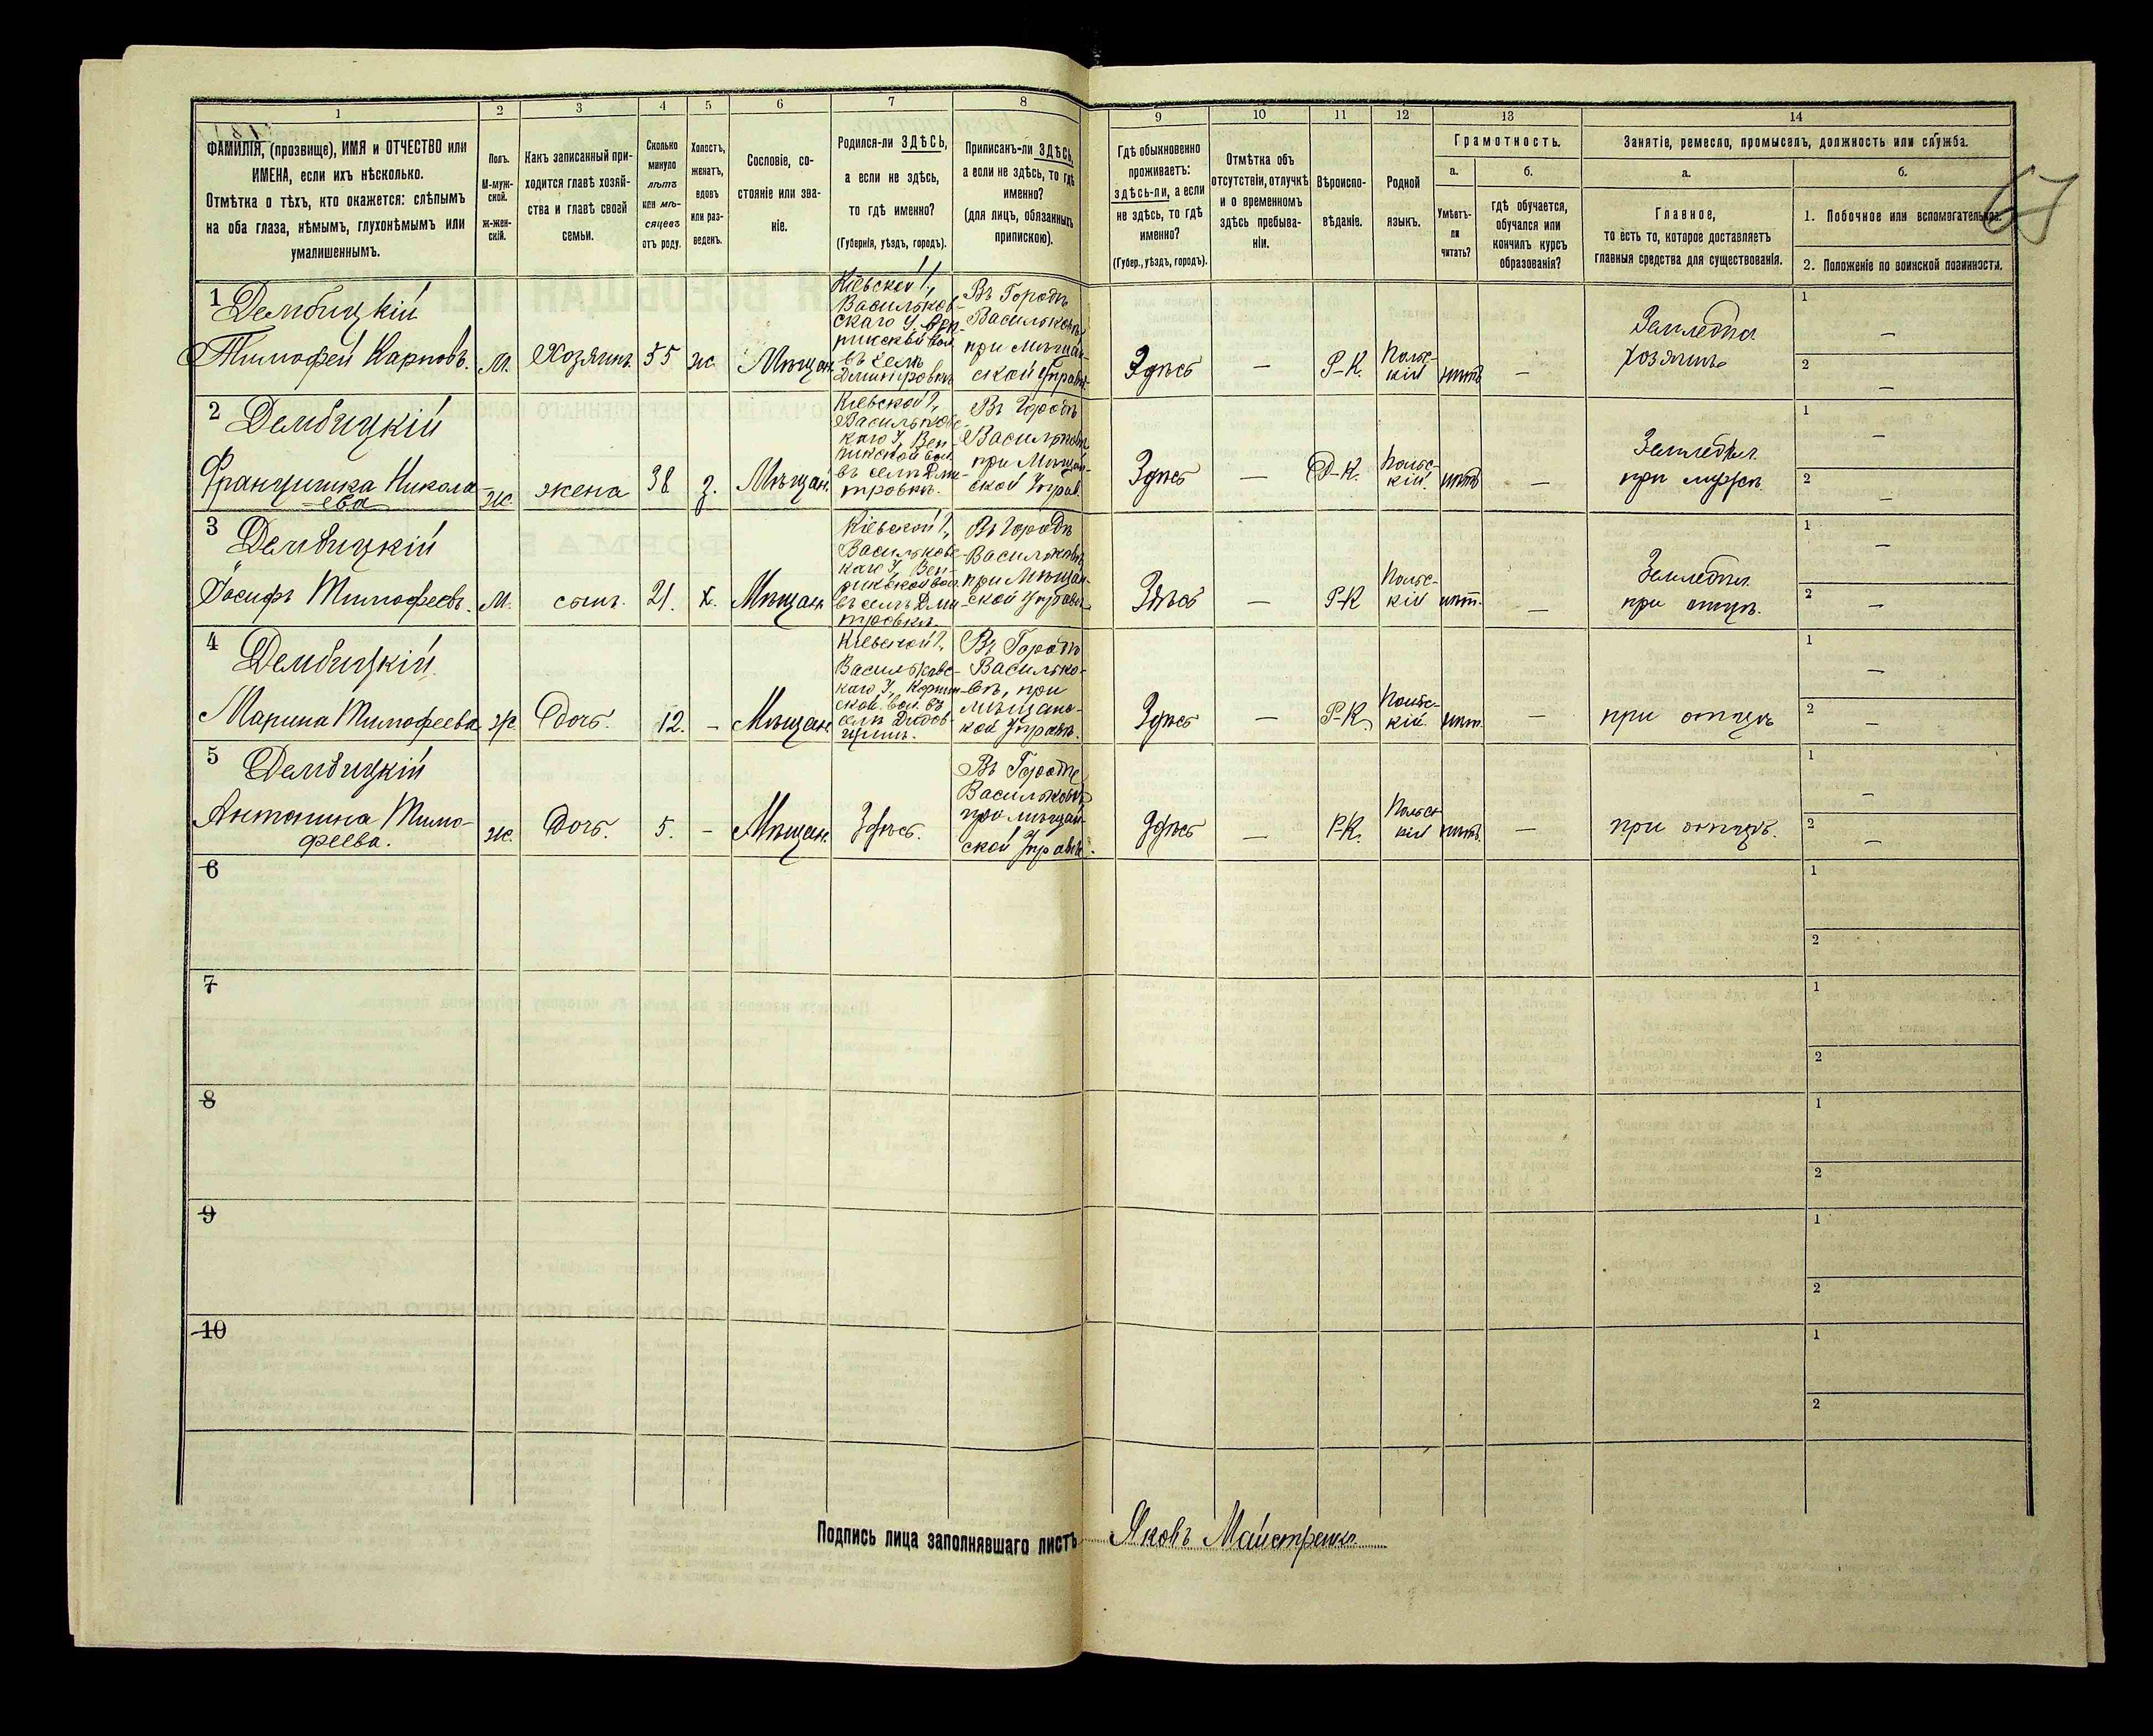 1
2
3
4
5
6
7
8
9
10
11
12
13
14
ФАМИЛІЯ, (прозвище), ИМЯ и ОТЧЕСТВО или
ИМЕНА, если ихъ нѣсколько.
Отмѣтка о тѣхъ, кто окажется: слѣпымъ
на оба глаза, нѣмымъ, глухонѣмымъ или
умалишеннымъ.
Полъ.
М-муж-
ской.
ж-жен-
скій.
Какъ записанный при-
ходится главѣ хозяй-
ства и главѣ своей
семьи.
Сколько
минуло
лѣтъ
или мѣ-
сяцевъ
отъ роду.
Холостъ,
женатъ,
вдовъ
или раз-
веденъ.
Сословіе, со-
стояніе или зва-
ніе.
Родился-ли ЗДѢСЬ,
а если не здѣсь,
то гдѣ именно?
(Губернія, уѣздъ, городъ).
Приписанъ-ли ЗДѢСЬ,
а если не здѣсь, то гдѣ
именно?
(для лицъ, обязанныхъ
припискою).
Гдѣ обыкновенно
проживаетъ:
здѣсь-ли, а если
не здѣсь, то гдѣ
именно?
(Губер., уѣздъ, городъ).
Отмѣтка объ
отсутствіи, отлучкѣ
и о временномъ
здѣсь пребыва-
ніи.
Вѣроиспо-
вѣданіе.
Родной
языкъ.
Грамотность.
а.
Умѣетъ-
ли
читать?
б.
гдѣ обучается,
обучался или
кончилъ курсъ
образованія?
Занятіе, ремесло, промыселъ, должность или служба.
а.
Главное,
то есть то, которое доставляетъ
главныя средства для существованія.
б.
1. Побочное или вспомогательное.
2. Положеніе по воинской повинности.
67
1 Дембицкій
Тимофей Карповъ.
М.
Хозяинъ.
55
ж
Мѣщан.
Кіевской Г.,
Васильков-
скаго У.
въ селѣ
Дмитровкѣ
Въ Городѣ
Васильковѣ
при Мѣщан-
ской Управѣ
Здѣсь
—
Р-К.
Поль-
кій
нѣтъ
—
Земледѣл
хозяинъ
1 —
2 —
2 Дембицкій
Францишка Никола-
ева
ж.
жена
38
з.
Мѣщан.
Кіевской Г.,
Васильковс-
каго У,
въ селѣ Дми-
тровкѣ.
Въ Городѣ
Васильковѣ
при Мѣщан-
ской Управ.
Здѣсь
—
Р-К.
Польс-
кій
нѣтъ
—
Земледѣл
при мужѣ.
1 —
2 —
3 Дембицкій
Іосифъ Тимофеевъ.
М.
сынъ.
21.
х.
Мѣщан
Кіевской Г.,
Васильковс-
каго У,
въ селѣ Дми-
тровкѣ.
Въ Городѣ
Васильковѣ
при Мѣщан-
ской Управѣ
Здѣсь
—
Р-К
Польс-
кій
нѣт.
—
Земледѣл
при отцѣ.
1 —
2 —
4 Дембицкій
Марина Тимофеева
ж.
Дочь.
12.
—
Мѣщан.
Кіевской Г.,
Васильковс-
каго У,
ской вол. въ
селѣ
Въ Городѣ
Василько-
вѣ, при
мѣщанс-
кой Управѣ.
Здѣсь
—
Р-К
Польс-
кій
нѣт.
—
при отцѣ
1 —
2 —
5 Дембицкій
Антонина Тимо-
феева.
ж.
Дочь.
5.
—
Мѣщан.
Здѣсь.
Въ Городѣ
Васильковѣ
при мѣщан-
ской Управѣ.
Здѣсь
—
Р-К.
Польс
кій
нѣтъ.
—
при отцѣ.
1 —
2 —
6
1
2
7
1
2
8
1
2
9
1
2
10
1
2
Подпись лица заполнявшаго листъ Яковъ Майстренко